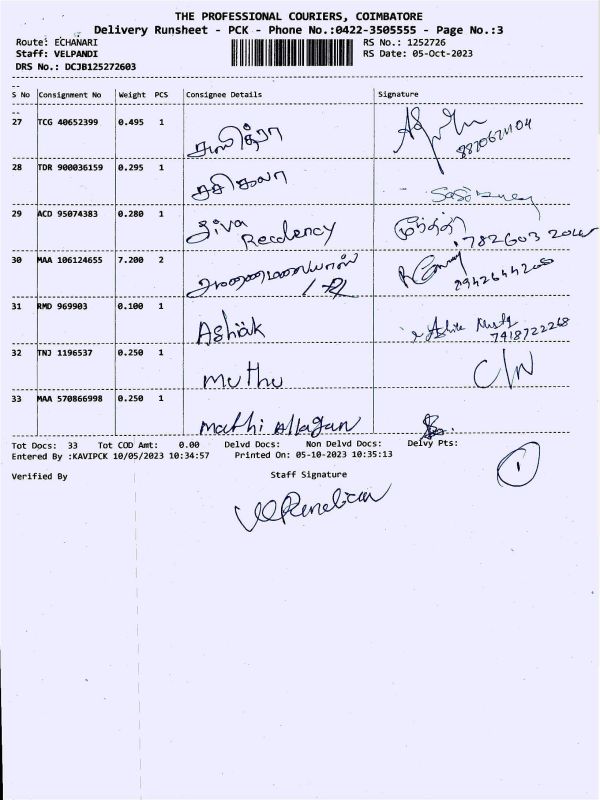 THE PROFESSIONAL COURIERS, COIMBATORE
Delivery Runsheet - PCK - Phone No.:0422-3505555 - Page No.:3
Route: ECHANARI RS No.: 1252726
Staff: VELPANDI RS Date: 05-Oct-2023
DRS No.: DCJB125272603
S No Consignment No Weight PCS Consignee Details Signature
27 TCG 40652399 0.495 1
28 TDR 900036159 0.295 1 சசிகலா
29 ACD 95074383 0.280 1 Siva
Recdency
30 MAA 106124655 7.200 2
31 RMD 969903 0.100 1 Ashiak
7418722268
32 TNJ 1196537 0.250 1 muthu C/N
33 MAA 570866998 0.250 1 Mathi Allagan
Tot Docs: 33 Tot COD Amt: 0.00 Delvd Docs: Non Delvd Docs: Delvy Pts:
Entered By :KAVIPCK 10/05/2023 10:34:57 Printed On: 05-10-2023 10:35:13
1
Verified By Staff Signature